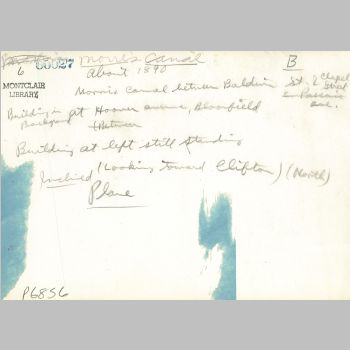 00027
6
MONTCLAIR
LIBRARY
Morris Canal
B
About 1890
Morris Canal between Baldwin St. & Chapel Street
& Passaic Ave.
Building in Background at Hoover Avenue, Bloomfield
(Between
Building at left still standing
Inclined (Looking toward Clifton) (North)
Plane
P6856